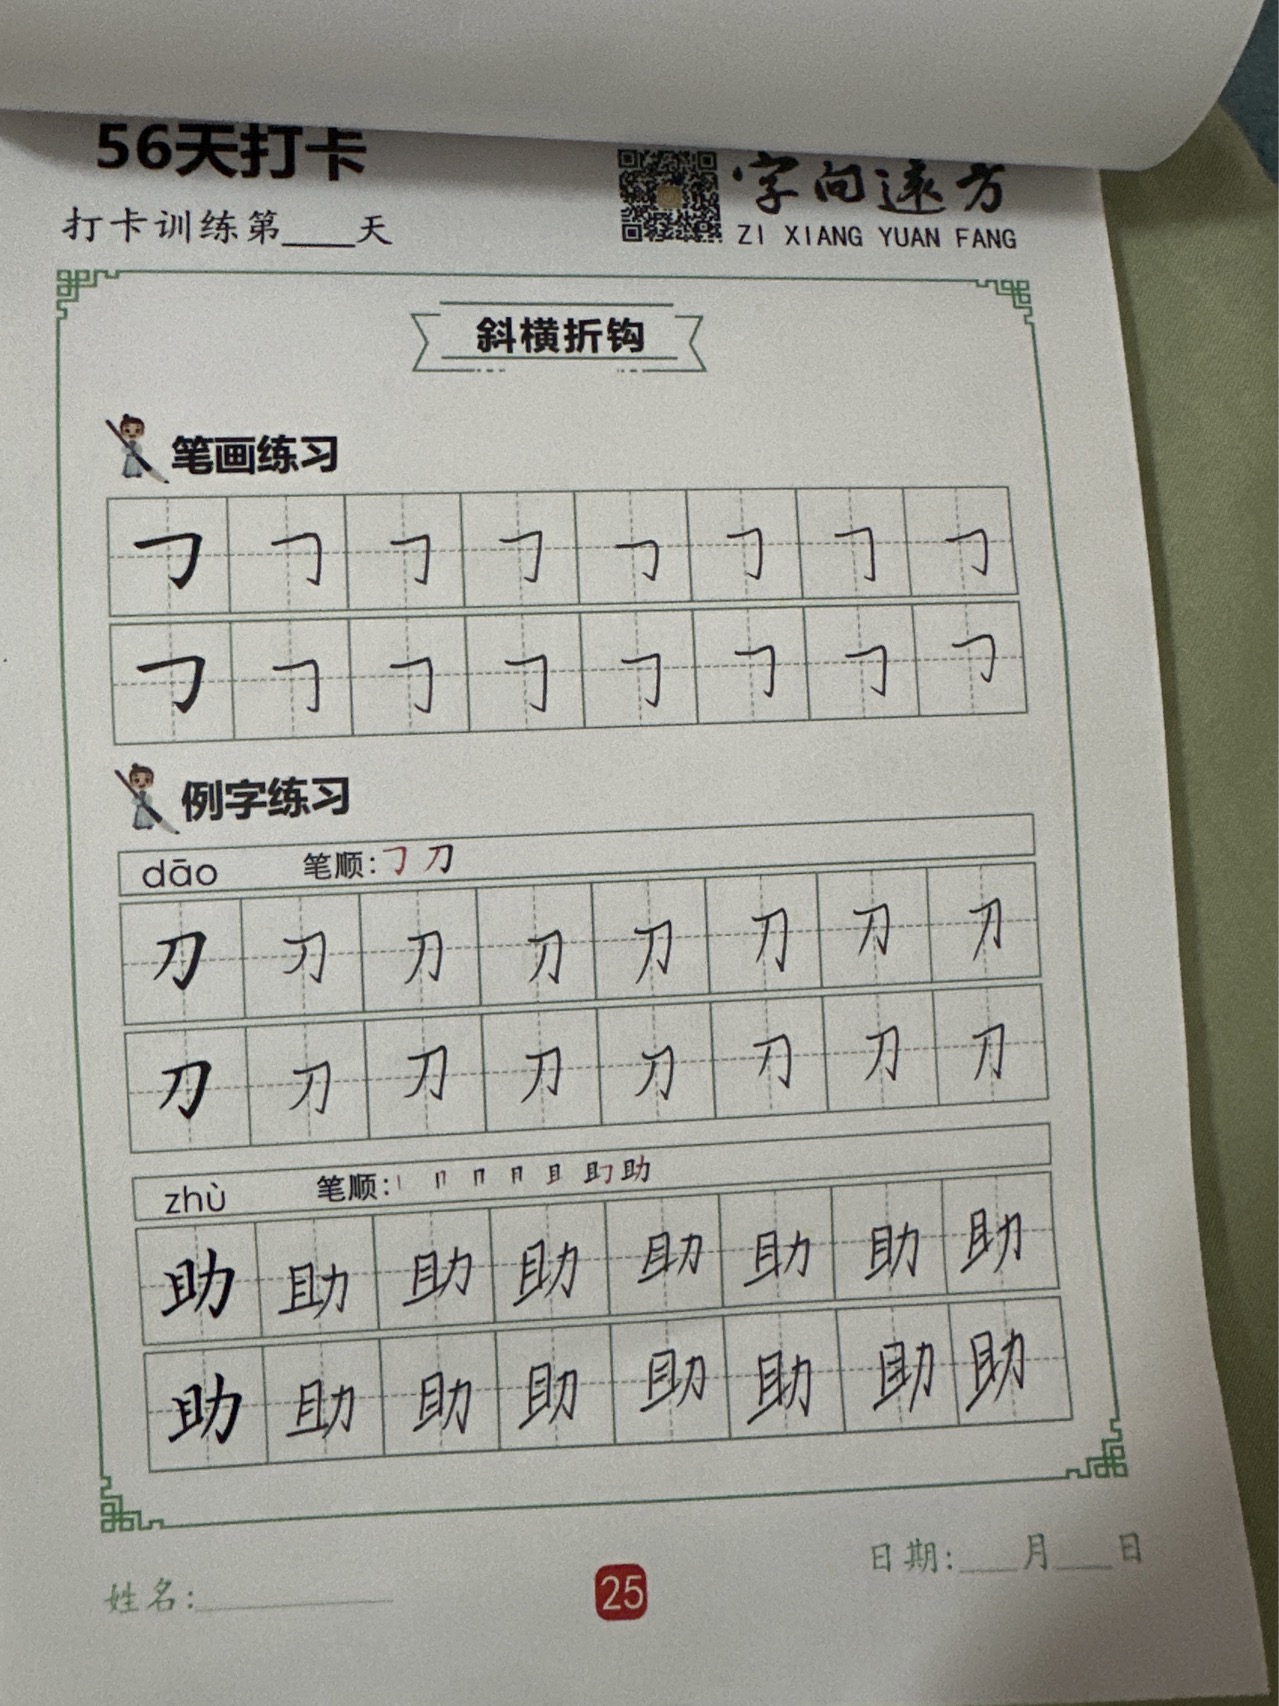 56天打卡
字向远方
打卡训练第____天
ZI XIANG YUAN FANG
斜横折钩
笔画练习
㇆ ㇆ ㇆ ㇆ ㇆ ㇆ ㇆ ㇆
㇆ ㇆ ㇆ ㇆ ㇆ ㇆ ㇆ ㇆
例字练习
dāo 笔顺:㇆ 刀
刀 刀 刀 刀 刀 刀 刀 刀
刀 刀 刀 刀 刀 刀 刀 刀
zhù 笔顺:丨 𠃍 助
助 助 助 助 助 助 助 助
助 助 助 助 助 助 助 助
日期:___月___日
姓名:__________
25